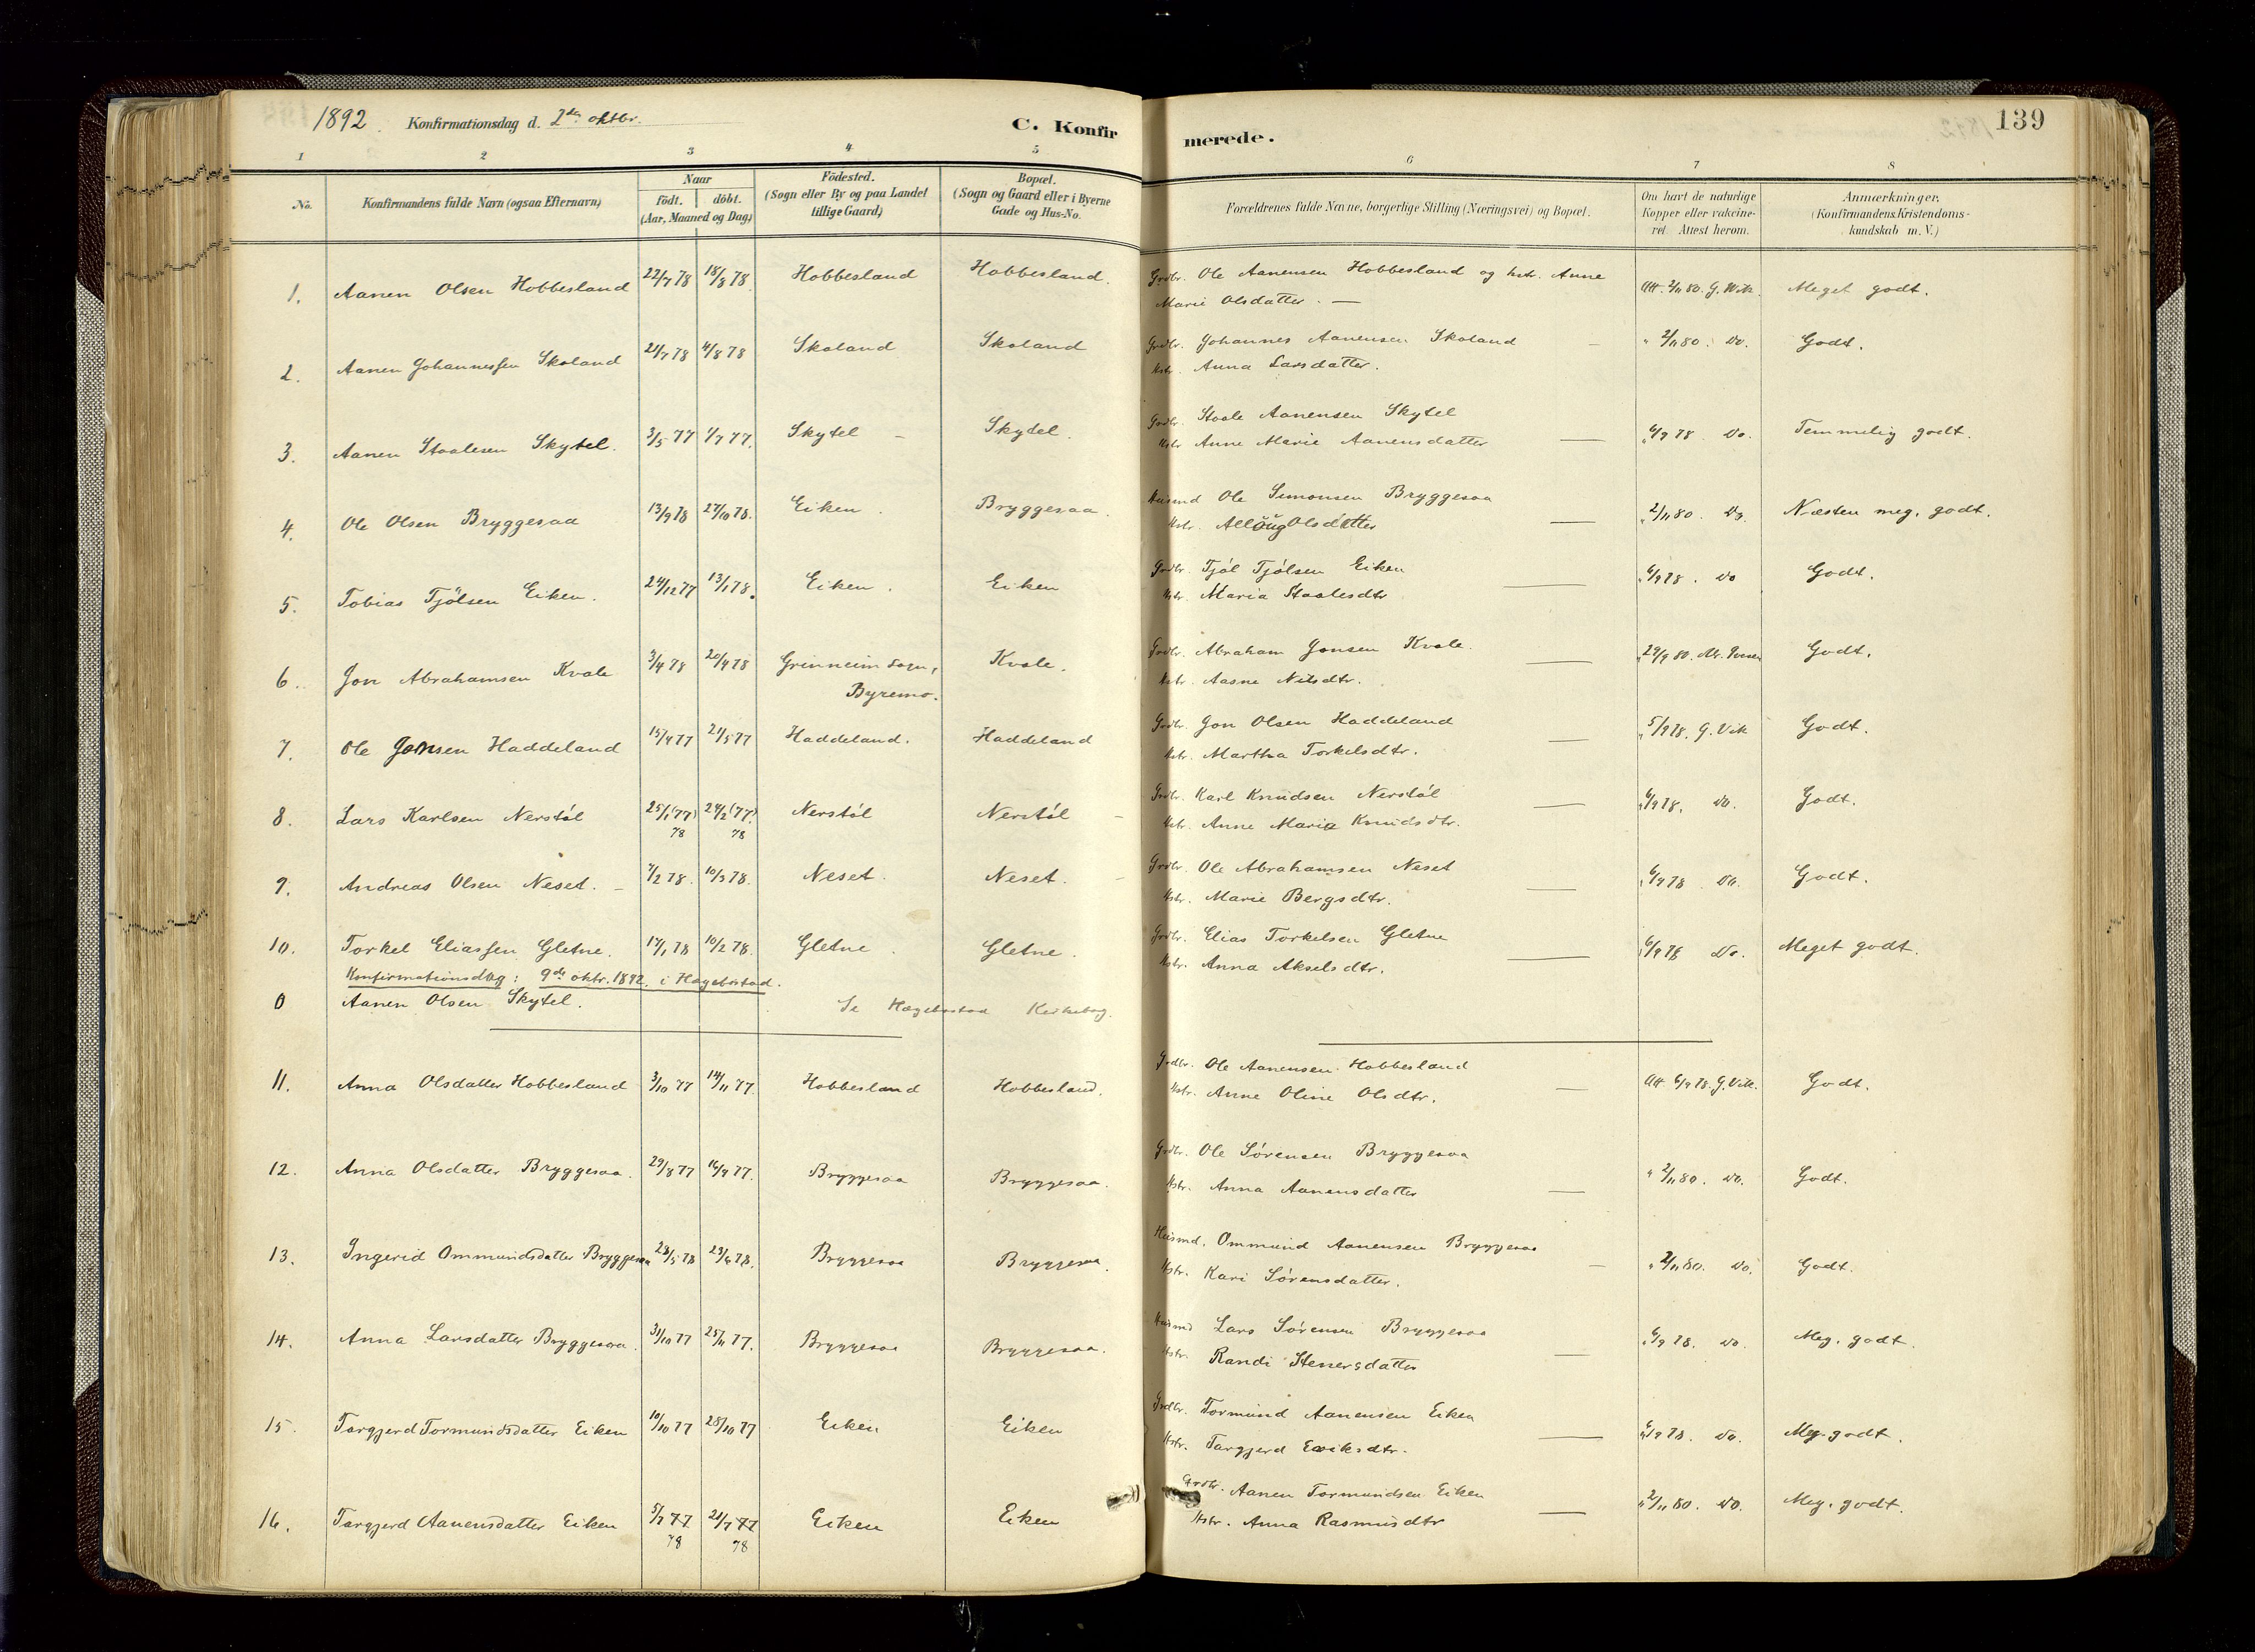 1892. Konfirmationsdag d. 2den oktbr. C. Konfir
merede. 139
1 2 3 4 5
6 7 8
No. Konfirmandens fulde Navn (ogsaa Efternavn) Naar födt. döbt. (Aar, Maaned og Dag) Födested. (Sogn eller By og paa Landet tillige Gaard) Bopæl. (Sogn og Gaard eller i Byerne Gade og Hus-No.
Forældrenes fulde Navne, borgerlige Stilling (Næringsvei) og Bopæl. Om havt de naturlige Kopper eller vakcineret. Attest herom. Anmærkninger. (Konfirmandens Kristendomskundskab m. V.)
1. Aanen Olsen Hobbesland 22/7 78 18/8 78. Hobbesland Hobbesland. Grdbr. Ole Aanensen Hobbesland og hstr. Anne
Marie Olsdatter. — Att. 2/11 80. G. Wik. Meget godt.
2. Aanen Johannesfen Skoland 21/7 78 4/8 78 Skoland Skoland Grdbr. Johannes Aanensen Skoland — " 2/11 80. do. Godt.
Hstr. Anna Larsdatter.
3. Aanen Staalesen Skytel. 3/5 77 1/7 77. Skytel – Skytel. Grdbr. Staale Aanensen Skytel
Hstr. Anne Marie Aanensdatter — " 6/9 78. do. Temmelig godt.
4. Ole Olsen Bryggesaa 13/9 78 27/10 78. Eiken. Bryggesaa. Husmd Ole Simonsen Bryggesaa
Hstr. Allöug Olsdatter — " 2/11 80. do. Næsten meg. godt.
5. Tobias Tjölsen Eiken. 24/12 77 13/1 78. Eiken. Eiken Grdbr. Tjöl Tjölsen Eiken
Hstr. Maria Staalesdtr — " 6/9 78. do Godt.
6. Jon Abrahamsen Kvale 3/4 78 20/4 78 Grinneim Sogn, Kvale. Grdbr. Abraham Jonsen Kvale.
Byremo. Hstr. Aasne Nilsdtr. — " 29/9 80. Godt.
7. Ole Jonsen Haddeland 15/4 77 21/5 77 Haddeland. Haddeland Grdbr. Jon Olsen Haddeland
Hstr. Martha Torkelsdtr. — " 5/9 78. G. Vik Godt.
8. Lars Karlsen Nerstöl 25/1 (77) 78 24/2 (77) 78 Nerstöl Nerstöl – Grdbr. Karl Knudsen Nerstöl
Hstr. Anne Maria Knudsdtr. — " 6/9 78. do. Godt.
9. Andreas Olsen Neset. – 7/2 78. 10/3 78. Neset. Neset. – Grdbr. Ole Abrahamsen Neset
Hstr. Marie Bergsdtr. — " 6/9 78. do. Godt.
10. Torkel Eliasfen Gletne. 17/1 78 10/2 78. Gletne. Gletne. Grdbr. Elias Torkelsen Gletne
Hstr. Anna Akselsdtr. — " 6/9 78 do. Meget godt.
Konfirmationsdag: 9de oktr. 1892. i Hægebostad.
0 Aanen Olsen Skytel. Se Hægebostad Kirkebog.
11. Anna Olsdatter Hobbesland 3/10 77 14/11 77. Hobbesland Hobbesland. Grdbr. Ole Aanensen Hobbesland
Hstr. Anne Oline Olsdtr. — Att 6/9 78. G. Vik. Godt.
12. Anna Olsdatter Bryggesaa. 29/8 77 16/9 77. Bryggesaa Bryggesaa. Grdbr. Ole Sörensen Bryggesaa
Hstr. Anna Aanensdatter — " 2/11 80. do. Godt.
13. Ingerid Ommundsdatter Bryggesaa 28/5 78 23/6 78. Bryggesaa Bryggesaa. Husmd. Ommund Aanensen Bryggesaa
Hstr. Kari Sörensdatter. — " 2/11 80. do. Godt.
14. Anna Larsdatter Bryggesaa. 31/10 77 25/11 77. Bryggesaa Bryggesaa. Husmd Lars Sörensen Bryggesaa
Hstr. Randi Stenersdatter — " 6/9 78. do. Meg. godt.
15. Targjerd Tormundsdatter Eiken 10/10 77 28/10 77 Eiken Eiken Grdbr. Tormund Aanensen Eiken
Hstr. Targjerd Eriksdtr. — " 6/9 78. do. Meg. godt.
16. Targjerd Aanensdatter Eiken 5/7 77 78 21/7 77 78 Eiken Eiken Grdbr. Aanen Tormundsen Eiken
Hstr. Anna Rasmusdtr — " 2/11 80. do. Meg. godt.